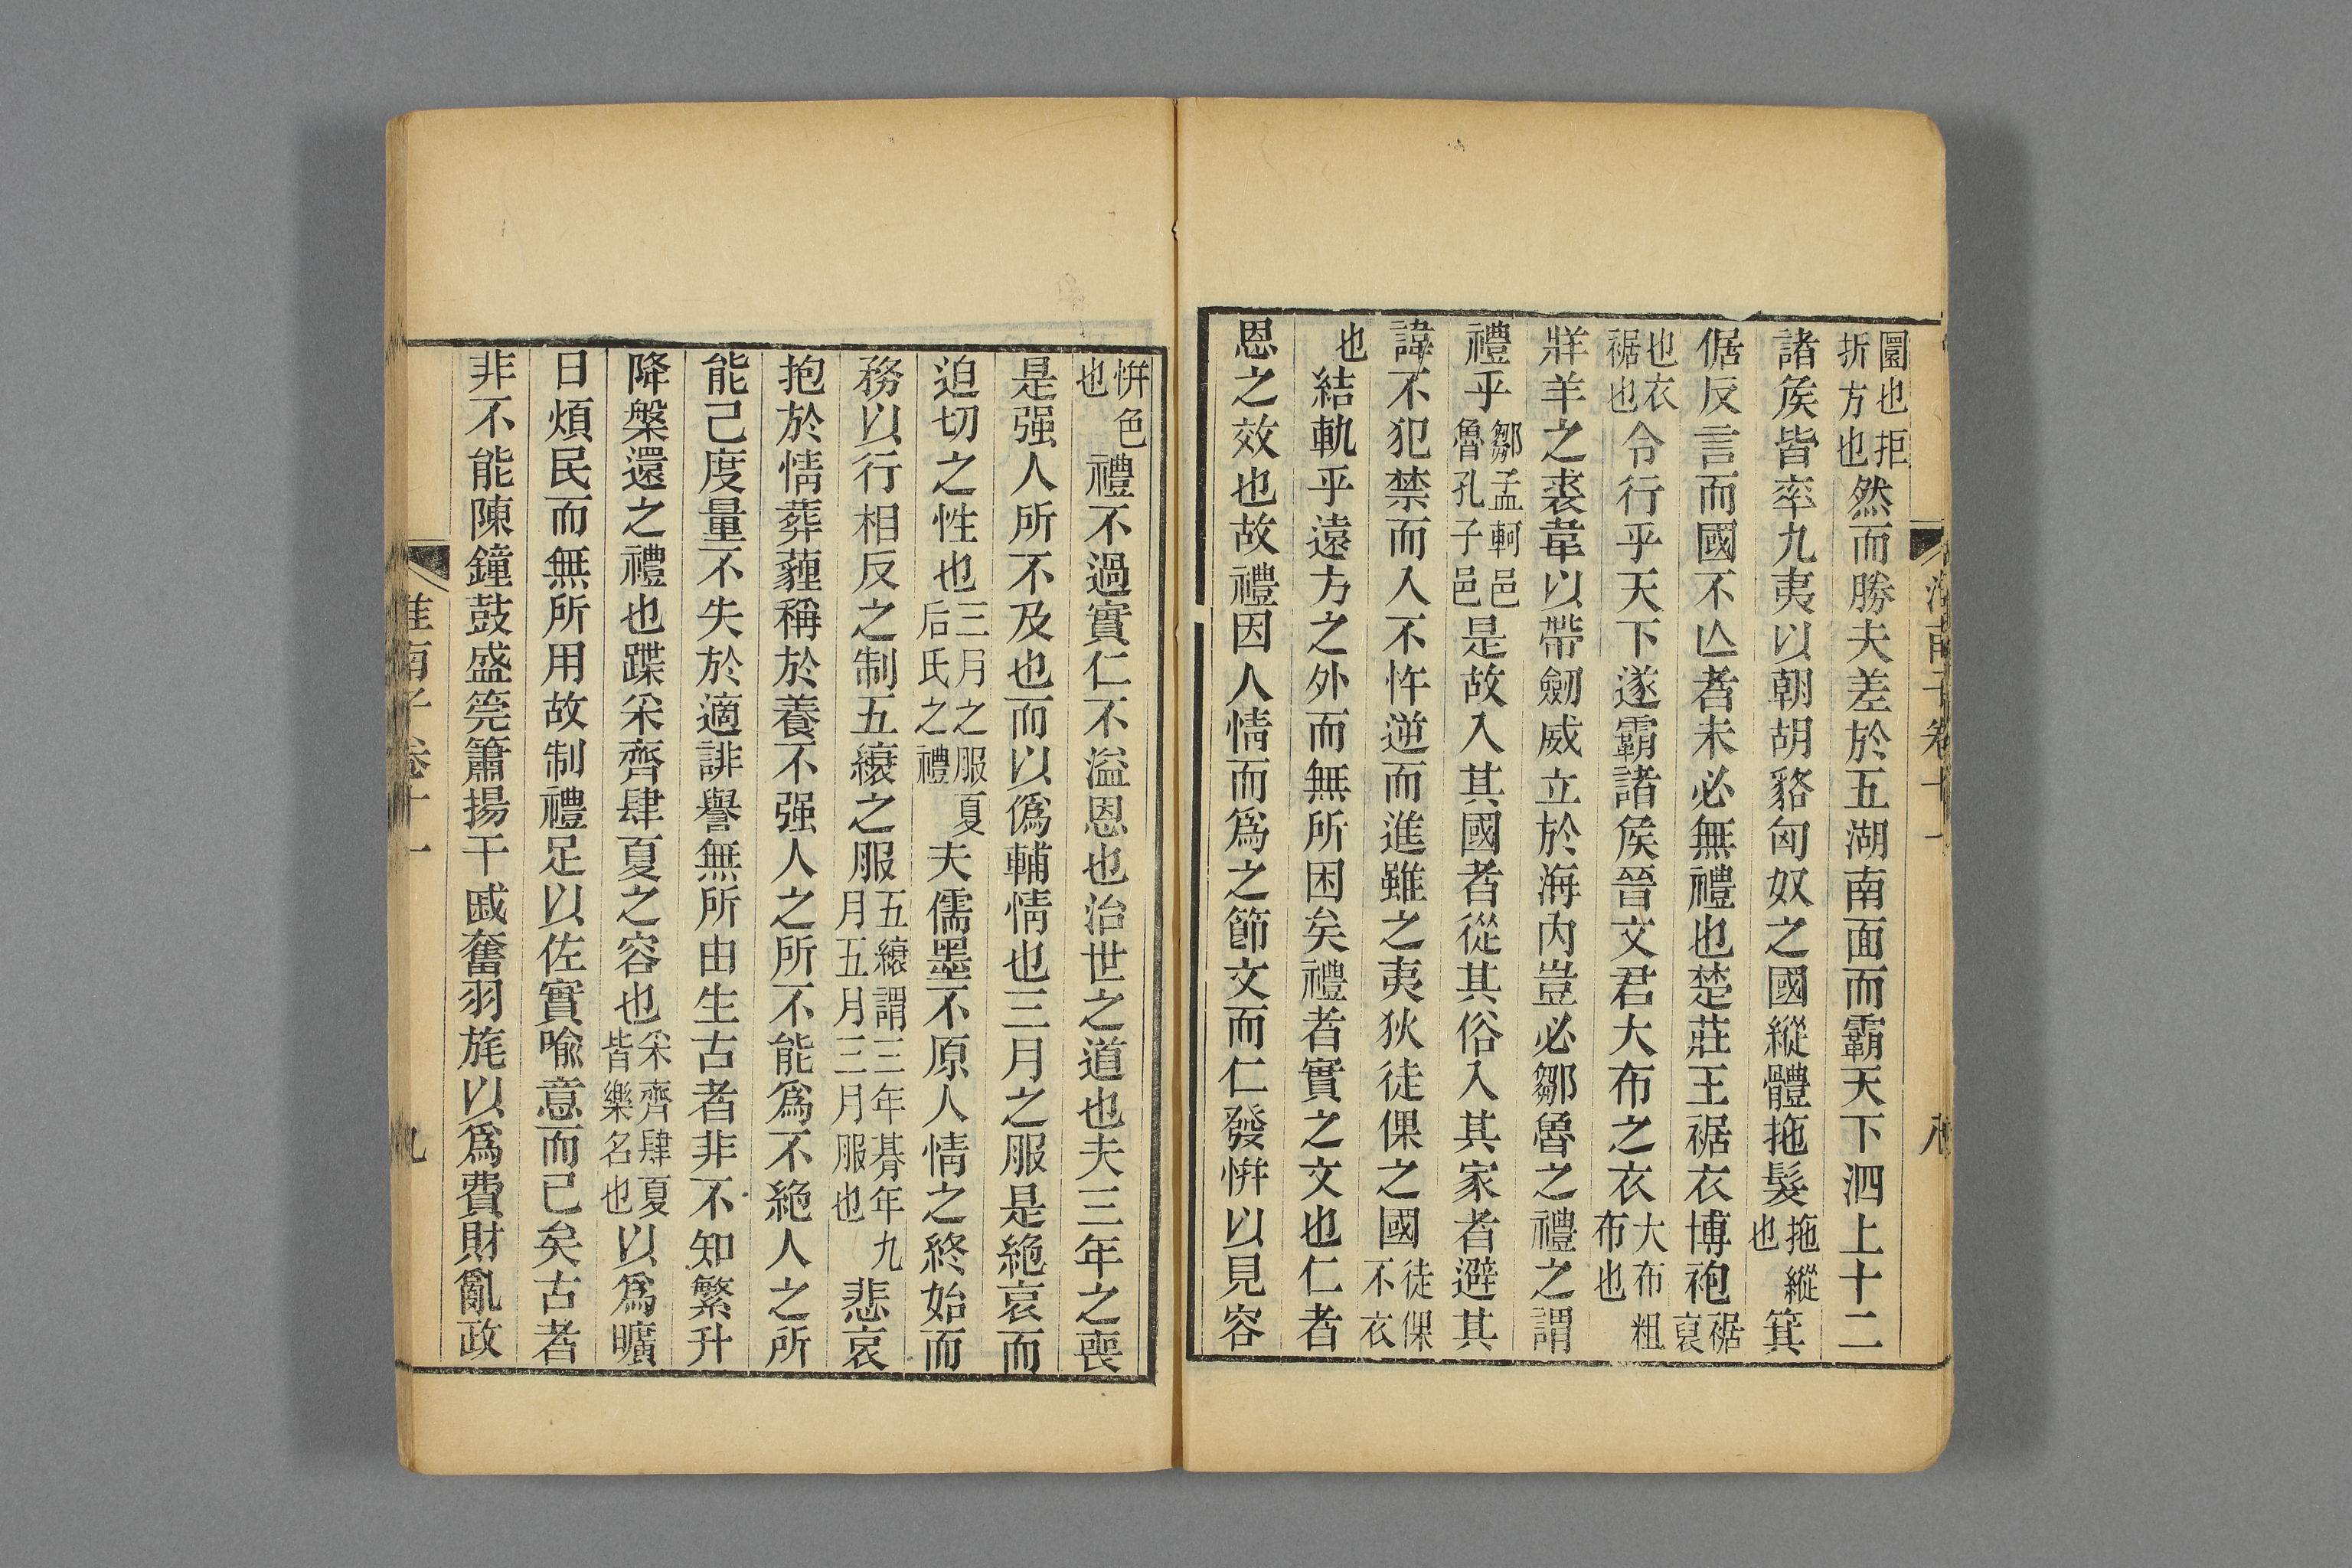 圜也拒折方也然而勝夫差於五湖南面而霸天下泗上十二
諸矦皆率九夷以朝胡貉匈奴之國縱體拖髮拖縱也箕
倨反言而國不亾者未必無禮也楚莊王裾衣博袍裾裒
也衣裾也令行乎天下遂霸諸矦晉文君大布之衣大布粗布也
牂羊之裘韋以帶劒威立於海内豈必鄒魯之禮之謂
禮乎鄒孟軻邑魯孔子邑是故入其國者從其俗入其家者避其
諱不犯禁而入不忤逆而進雖之夷狄徒倮之國徒倮不衣
也結軌乎遠方之外而無所困矣禮者實之文也仁者
恩之效也故禮因人情而爲之節文而仁發恲以見容
恲色也禮不過實仁不溢恩也治世之道也夫三年之喪
是强人所不及也而以僞輔情也三月之服是絶哀而
迫切之性也三月之服夏后氏之禮夫儒墨不原人情之終始而
務以行相反之制五縗之服五縗謂三年朞年九月五月三月服也悲哀
抱於情葬薶稱於養不强人之所不能爲不絶人之所
能己度量不失於適誹譽無所由生古者非不知繁升
降槃還之禮也蹀采齊肆夏之容也采齊肆夏皆樂名也以爲曠
日煩民而無所用故制禮足以佐實喻意而已矣古者
非不能陳鐘鼓盛筦簫揚干戚奮羽旄以爲費財亂政
淮南子卷十一
九